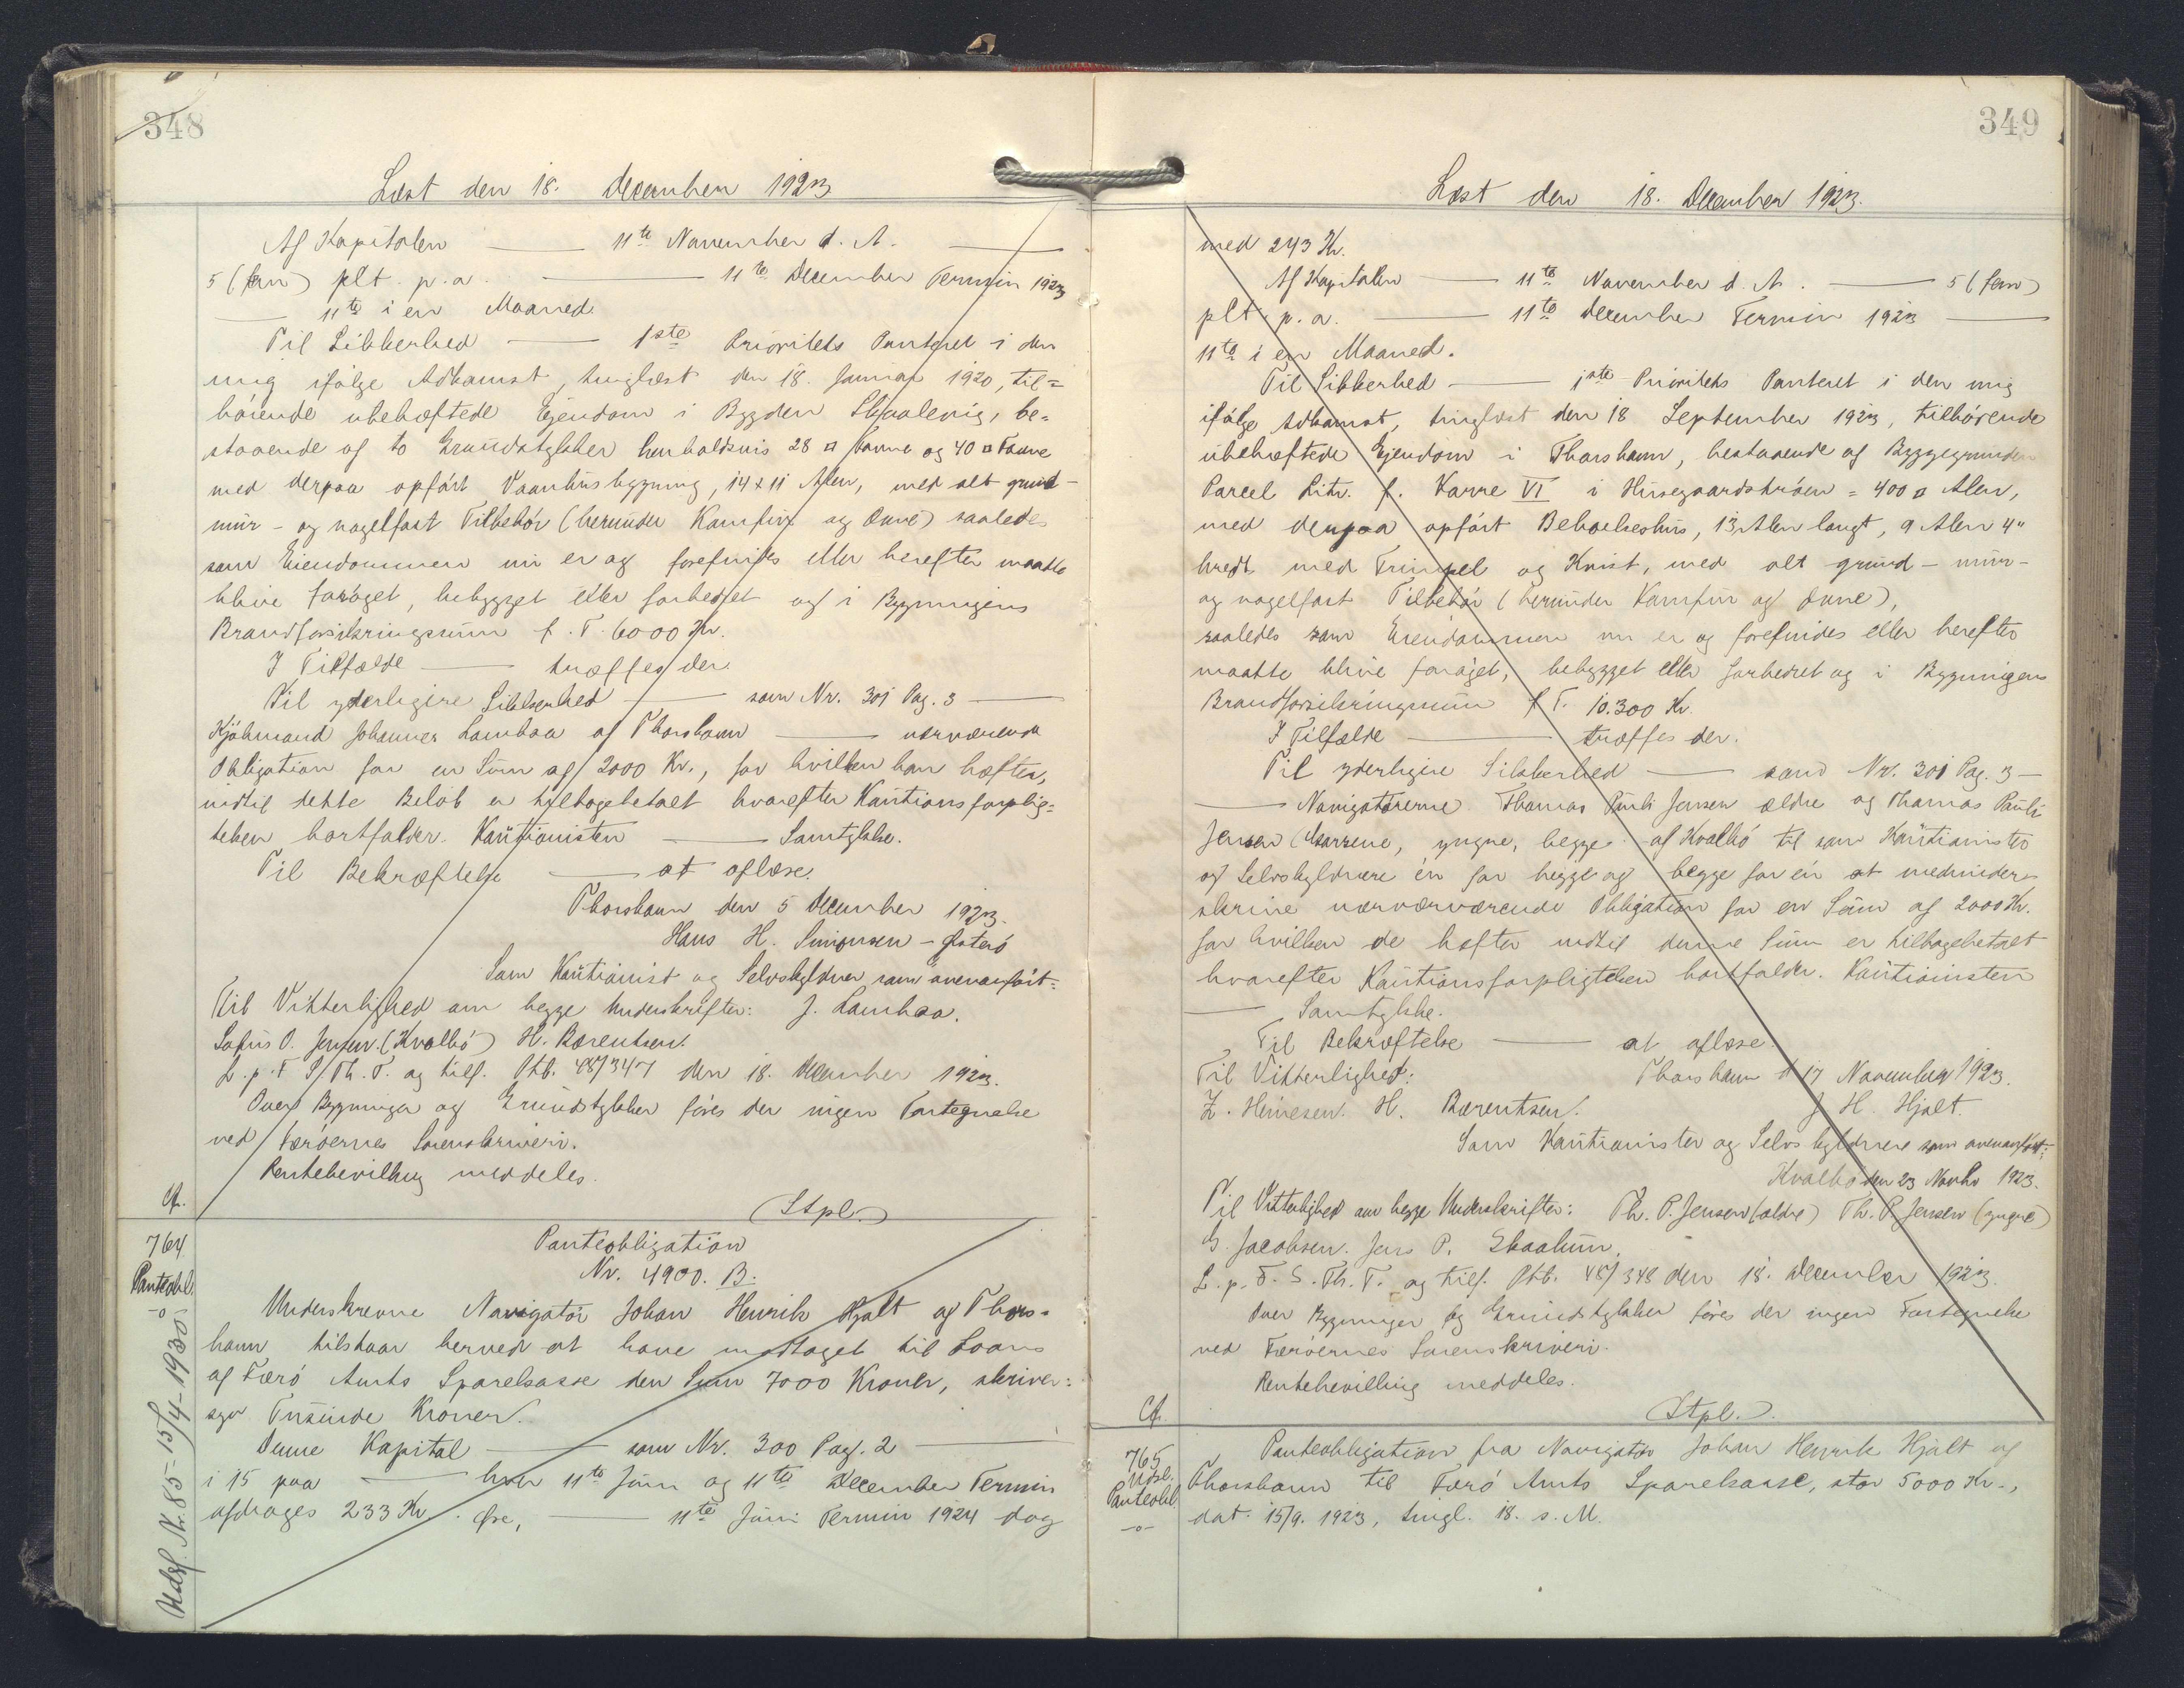 348
Læst den 18. December 1923
Af Kapitalen —— 11te November d. A. ——
5 (fem) pCt. p. a. —— 11te December Termin 1923
—— 11te i en Maaned.
Til Sikkerhed —— 1ste Prioritets Panteret i den
mig ifølge Adkomst, tinglæst den 18. Januar 1920, til=
hørende ubehæftede Ejendom i Bygden Skaalevig, be=
staaende af to Grundstykker henholdsvis 28 □ Favne og 40 □ Favne
med derpaa opført Vaanhusbygning, 14 x 11 Alen, med alt grund-
mur- og nagelfast Tilbehør (herunder Komfur og Ovne) saaledes
som Eiendommen nu er og forefindes eller herefter maatte
blive forøget, bebygget eller forbedret og i Bygningens
Brandforsikringssum f. T. 6000 Kr.
I Tilfælde —— træffes der.
Til yderligere Sikkerhed —— som Nr. 301 Pag. 3 ——
Kjøbmand Johannes Lamhaa af Thorshavn —— nærværende
Obligation for en Sum af 2000 Kr., for hvilken han hæfter,
indtil dette Beløb er tilbagebetalt hvorefter Kautionsforplig=
telsen bortfalder. Kautionisten —— Samtykke.
Til Bekræftelse —— at aflæse.
Thorshavn den 5 December 1923.
Hans H. Simonsen - Østerø
Som Kautionist og Selvskyldner som ovenanført:
Til Vitterlighed om begge Underskrifter: J. Lamhaa.
Sofus O. Jensen. (Kvalbø) H. Bærentsen.
L. p. F. S. Th. T. og tilf. Ptb. 48/347 den 18. December 1923.
Over Bygninger og Grundstykker føres der ingen Fortegnelse
ved Færøernes Sorenskriveri.
Rentebevilling meddeles.
Cf.
(Stpl.)
764
Panteobl.
-o-
Udsl. Nr. 85-15/4-1930
Panteobligation
Nr. 4900. B.
Underskrevne Navigatør Johan Henrik Hjalt af Thors=
havn tilstaar herved at have modtaget til Laans
af Færø Amts Sparekasse den Sum 7000 Kroner, skriver:
syv Tusinde Kroner.
Denne Kapital —— som Nr. 300 Pag. 2 ——
i 15 paa —— hver 11te Juni og 11te December Termin
afdrages 233 Kr. Øre, —— 11te Juni Termin 1924 dog
349
Læst den 18. December 1923.
med 243 Kr.
Af Kapitalen —— 11te November d. A. —— 5 (fem)
pCt. p. a. —— 11te December Termin 1923 ——
11te i en Maaned.
Til Sikkerhed —— 1ste Prioritets Panteret i den mig
ifølge Adkomst, tinglæst den 18 September 1923, tilhørende
ubehæftede Ejendom i Thorshavn, bestaaende af Byggegrunden
Parcel Litr. f. Karre VI i Husegaardstrøen = 400 □ Alen,
med derpaa opført Beboelseshus, 13 Alen langt, 9 Alen 4"
bredt med Trempel og Kvist, med alt grund- mur-
og nagelfast Tilbehør (herunder Komfur og Ovne),
saaledes som Eiendommen nu er og forefindes eller herefter
maatte blive forøget, bebygget eller forbedret og i Bygningens
Brandforsikringssum f. T. 10.300 Kr.
I Tilfælde —— træffes der.
Til yderligere Sikkerhed —— som Nr. 301 Pag. 3 —
—— Navigatørerne Thomas Pauli Jensen ældre og Thomas Pauli
Jensen yngre, begge af Kvalbø til som Kautionister
og Selvskyldnere én for begge og begge for én at medunder=
skrive nærværværende Obligation for en Sum af 2000 Kr.
for hvilken de hæfter indtil denne Sum er tilbagebetalt
hvorefter Kautionsforpligtelsen bortfalder. Kautionisten
—— Samtykke.
Til Bekræftelse —— at aflæse.
Til Vitterlighed: Thorshavn d. 17 November 1923.
Z. Heinesen. H. Bærentsen. J. H. Hjalt.
Som Kautionister og Selvskyldnere som ovenanført:
Kvalbø den 23 Novbr 1923.
Til Vitterlighed om begge Underskrifter: Th. P. Jensen (ældre) Th. P. Jensen (yngre)
G. Jacobsen. Jens P. Skaalum.
L. p. F. S. Th. T. og tilf. Ptb. 48/348 den 18. December 1923.
Over Bygninger og Grundstykker føres der ingen Fortegnelse
ved Færøernes Sorenskriveri.
Rentebevilling meddeles.
Cf.
(Stpl.).
765
Udsl.
Panteobl.
-o-
Panteobligation fra Navigatør Johan Henrik Hjalt af
Thorshavn til Færø Amts Sparekasse, stor 5000 Kr.,
dat. 15/9. 1923, tingl. 18. s. M.